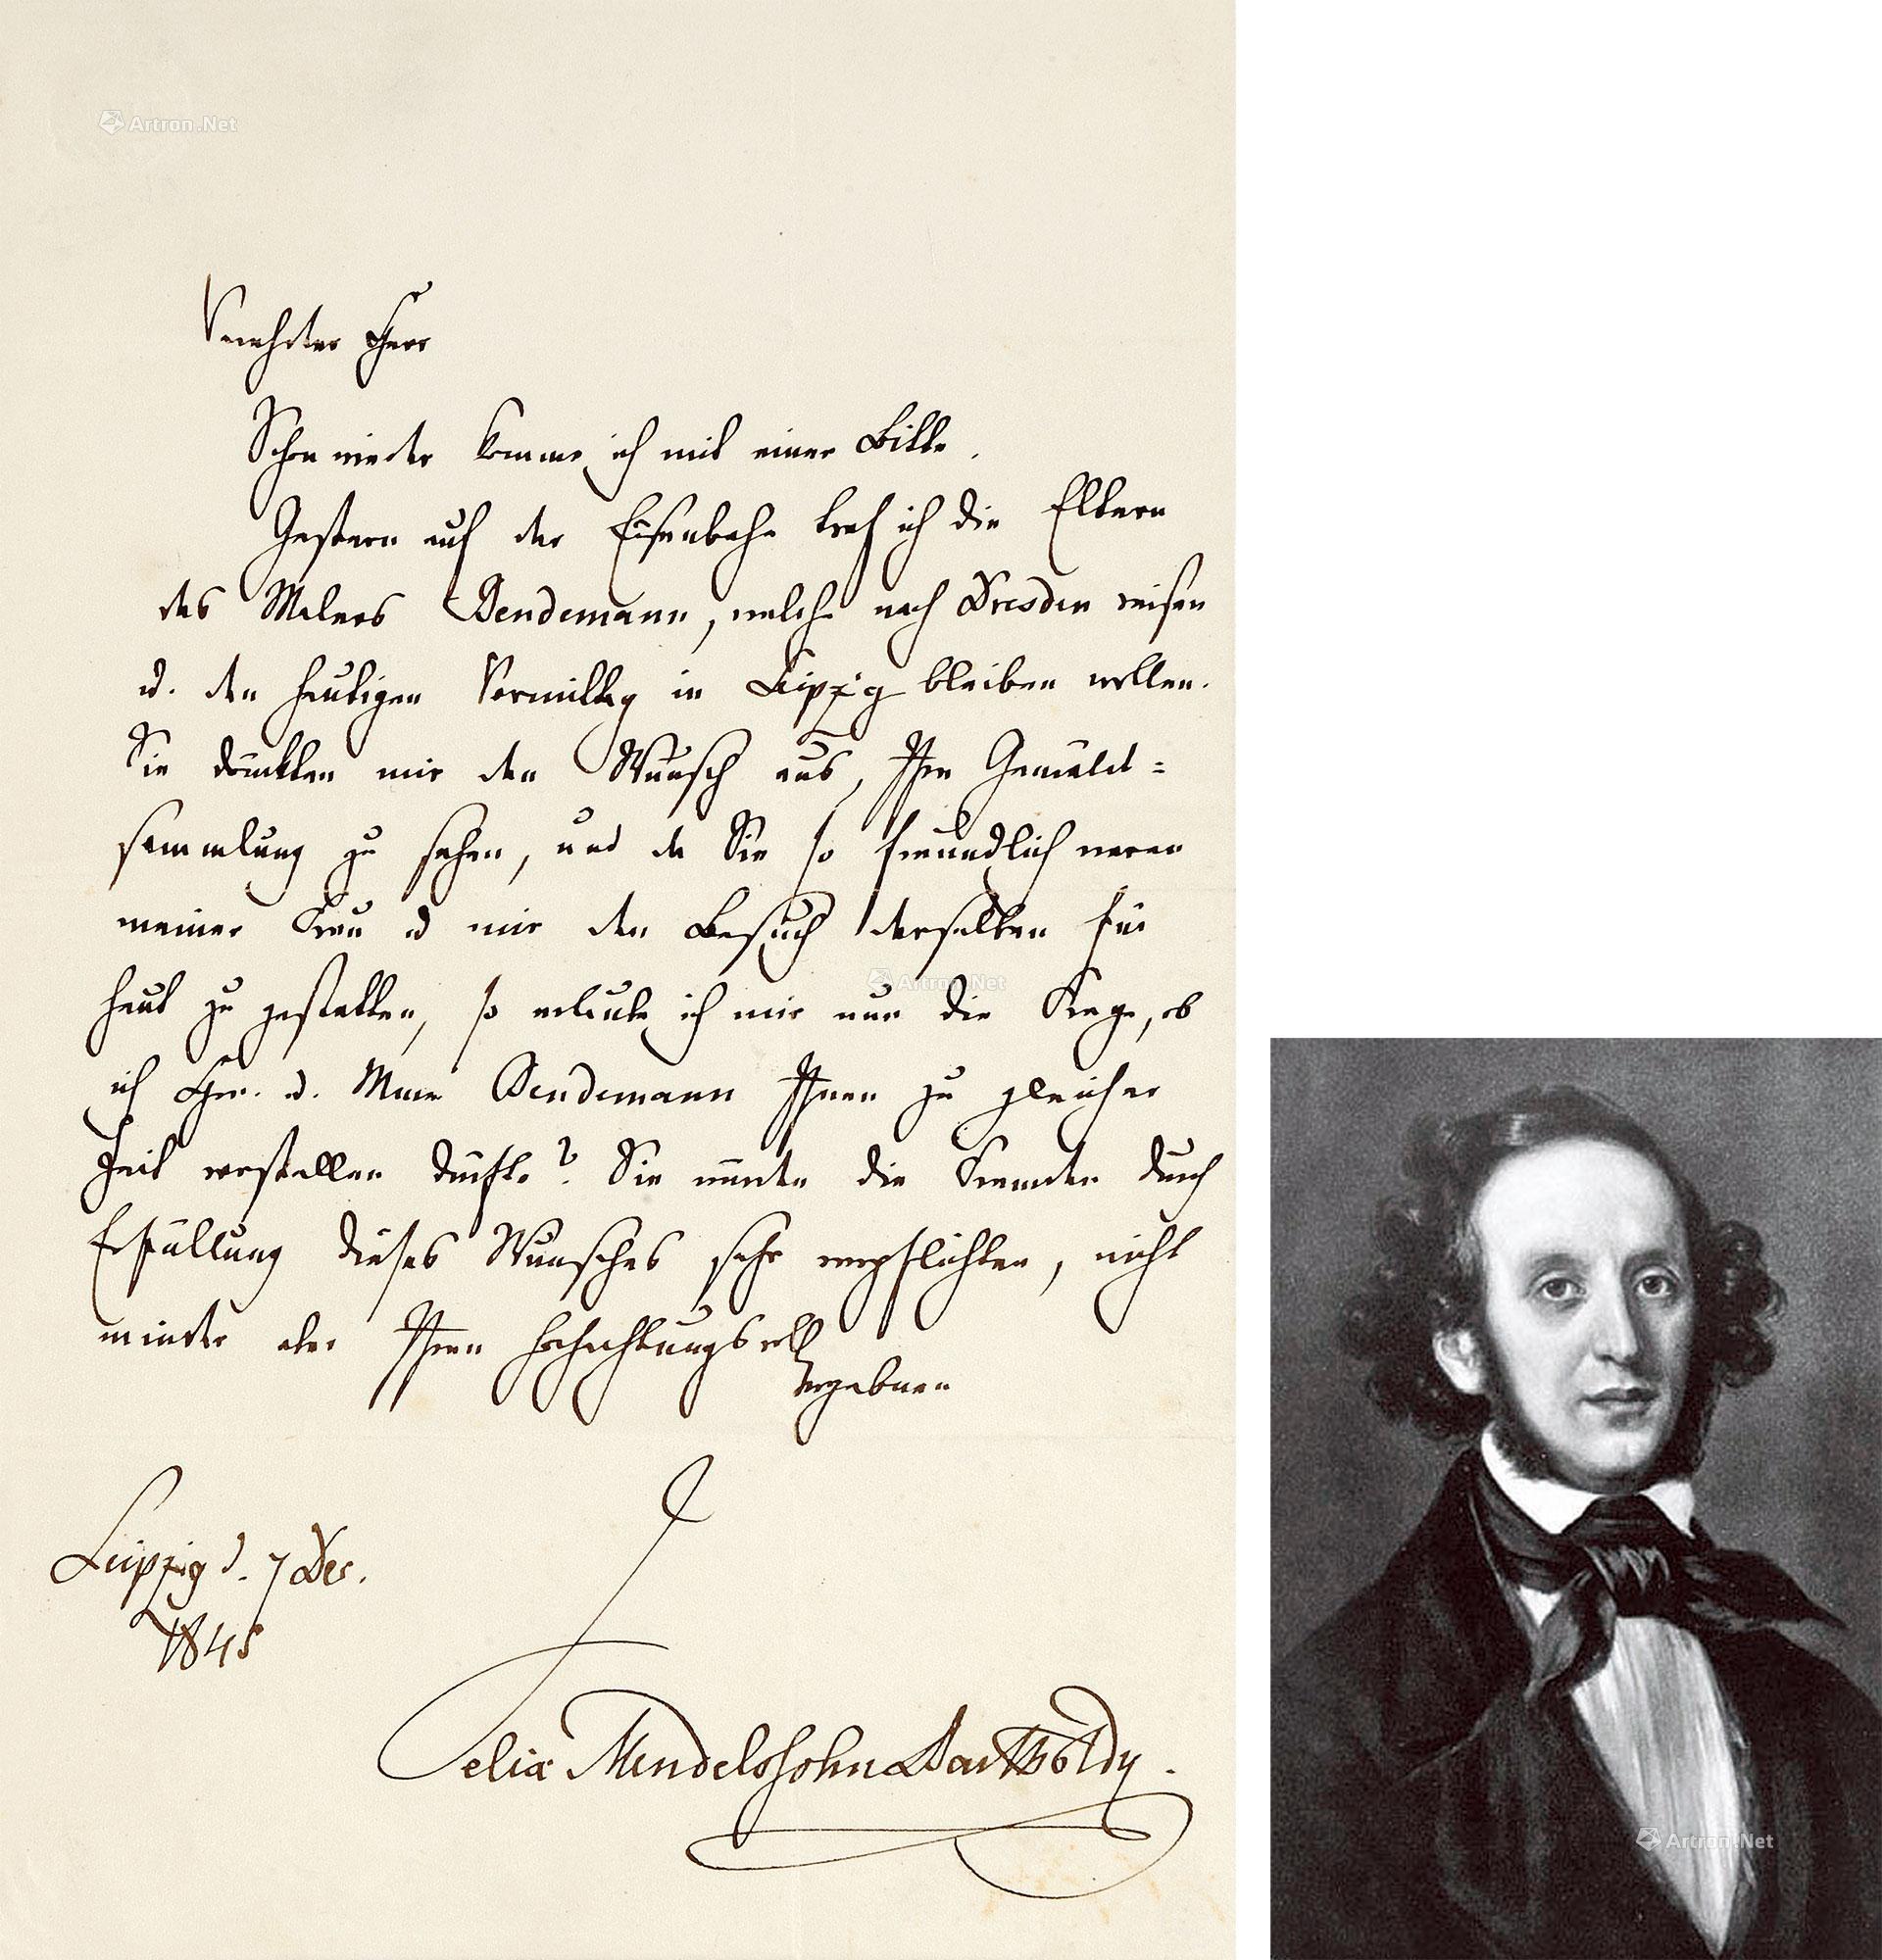 Artron.Net
Verehrter Herr
Schon wieder komme ich mit einer Bitte.
Gestern auf der Eisenbahn traf ich die Eltern
des Malers Bendemann, welche nach Dresden reisen
u. den heutigen Vormittag in Leipzig bleiben wollen.
Sie drückten mir den Wunsch aus, Ihre Gemälde=
sammlung zu sehen, und da Sie so freundlich waren
meiner Frau u mir den Besuch derselben für
heut zu gestatten, so erlaube ich mir nun die Frage, ob
ich Hrn. u. Mme Bendemann Ihnen zu gleicher
Zeit vorstellen dürfte? Sie würden die Fremden durch
Erfüllung dieses Wunsches sehr verpflichten, nicht
minder aber Ihren hochachtungsvoll
ergebnen
Leipzig d. 7 Dec.
1845
Felix Mendelssohn Bartholdy.
Artron.Net
Artron.Net